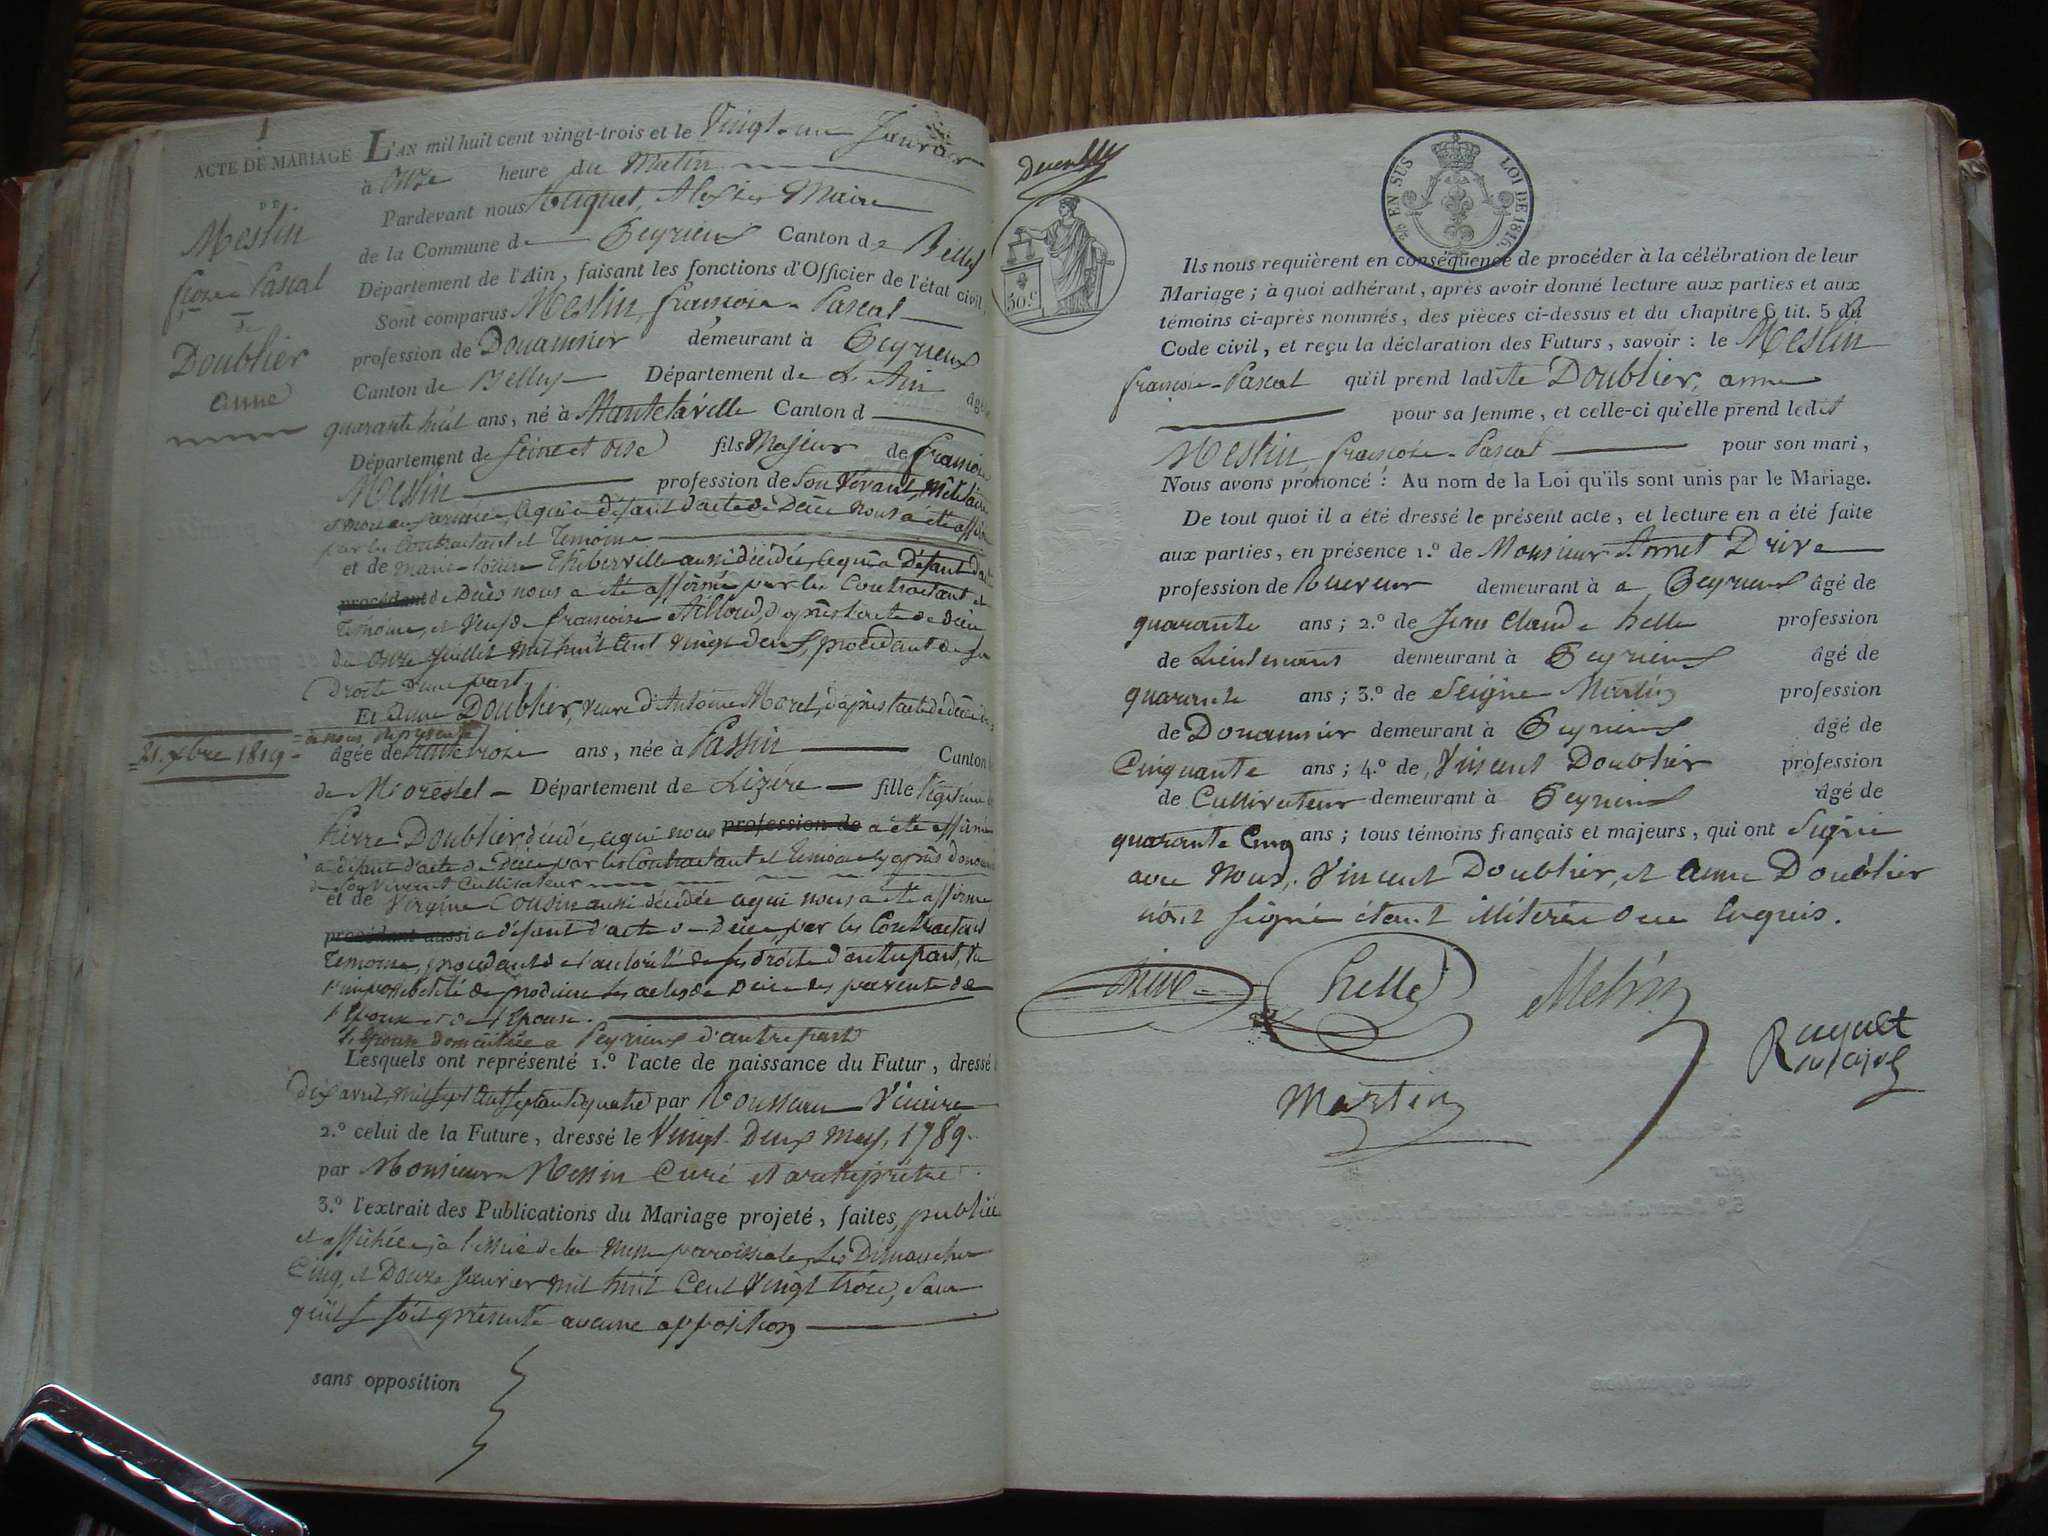 1
ACTE DE MARIAGE
DE
Meslin
françoise Pascal
de
Doublier
anne
L'AN mil huit cent vingt-trois et le Vingt-un Janvier
à Onze heure du Matin
Pardevant nous Ruquet, Alexis Maire
de la Commune de Peyrieux Canton de Belley
Département de l'Ain, faisant les fonctions d'Officier de l'état civil,
Sont comparus Meslin, françoise-Pascal
profession de Douannier demeurant à Peyrieux
Canton de Belley Département de L'Ain âgé
quarante huit ans, né à Mantelaville Canton d
Département de Seine et Oise fils Majeur de françois
Meslin profession de Son Vivant Militaire
et mort aux armées, ce qui à défaut d'acte de Décès nous a été affirmé
par les Contractant et Temoins
et de Marie-Louise Thiberville aussi décédée, ce qui à Défaut d'acte
procédant de Décès nous a été affirmé par les Contractant et
Temoins, et Veuf de françoise Milloud, d'après l'acte de décès
du Onze Juillet Mil huit Cent vingt deux, procédant de ses
Droits d'une part,
Et Anne Doublier, Veuve d'Antoine Morel, d'après l'acte de décès
à nous représenté
21. xbre 1819
âgée de trente trois ans, née à Passin Canton
de Morestel Département de Lizére fille légitime de
Pierre Doublier, décédé, ce qui nous profession de a été affirmé
à défaut d'acte de Décès par les Contractant et Temoins
de Son Vivant Cultivateur
et de Virgine Cousin aussi décédée ce qui nous a été affirmé
procédant aussi à défaut d'acte de Décès par les Contractant
Temoins, procédant de l'autorité de ses droits d'autre part, vu
l'impossibilité de produire les actes de Décès des parents de
l'Epoux et de l'Epouse.
L'Epouse domiciliée a Peyrieux d'autre part
Lesquels ont représenté 1.º l'acte de naissance du Futur, dressé
Dix avril, mil sept Cent septante quatre par Rousseau Vicaire
2.º celui de la Future, dressé le Vingt-Deux May, 1789.
par Monsieur Messin Curé et archiprêtre
3.º l'extrait des Publications du Mariage projeté, faites, publiée
et affichée, à l'issue de la Messe paroissiale, les Dimanches
Cinq, et Douze Janvier mil huit Cent Vingt trois, sans
qu'il se soit présenté aucune opposition
sans opposition
50.c
25 EN SUS LOI DE 1816.
Ils nous requièrent en conséquence de procéder à la célébration de leur
Mariage; à quoi adhérant, après avoir donné lecture aux parties et aux
témoins ci-après nommés, des pièces ci-dessus et du chapitre 6 tit. 5 du
Code civil, et reçu la déclaration des Futurs, savoir: le Meslin
françoise-Pascal qu'il prend ladite Doublier, anne
pour sa femme, et celle-ci qu'elle prend ledit
Meslin, françoise-Pascal pour son mari,
Nous avons prononcé: Au nom de la Loi qu'ils sont unis par le Mariage.
De tout quoi il a été dressé le présent acte, et lecture en a été faite
aux parties, en présence 1.º de Monsieur Drive
profession de demeurant à a Peyrieux âgé de
quarante ans; 2.º de Jean Claude helle profession
de Lieutenant demeurant à Peyrieux âgé de
quarante ans; 3.º de Seigne Martin profession
de Douannier demeurant à Peyrieux âgé de
Cinquante ans; 4.º de Vincent Doublier profession
de Cultivateur demeurant à Peyrieux âgé de
quarante Cinq ans; tous témoins français et majeurs, qui ont Signé
avec Nous, Vincent Doublier, et Anne Doublier
n'ont Signé étant illiterés de ce enquis.
Drive helle Melin
Ruquet
maire
Martin